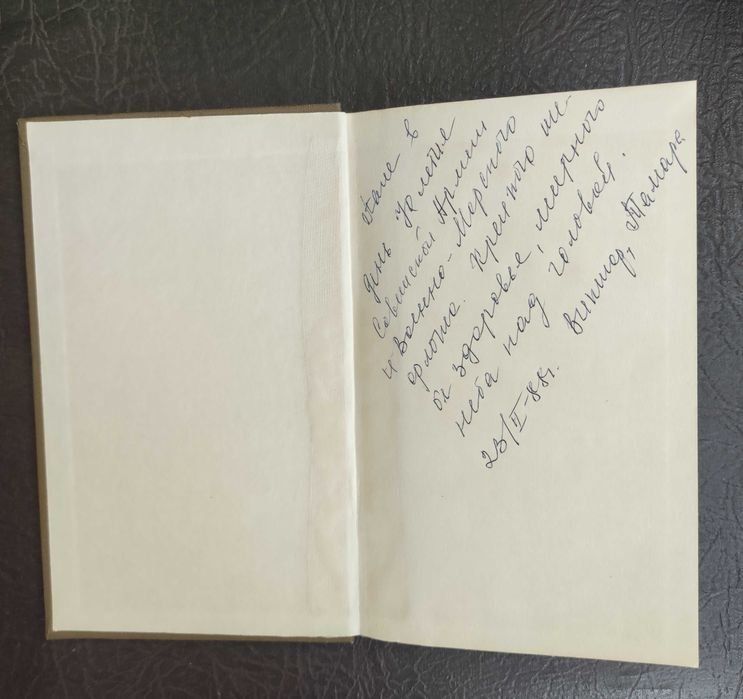 Папе в
день 70 летия
Советской Армии
и Военно-Морского
флота. Крепкого те-
бе здоровья, мирного
неба над головой.
23/II-88г. Виктор, Тамара